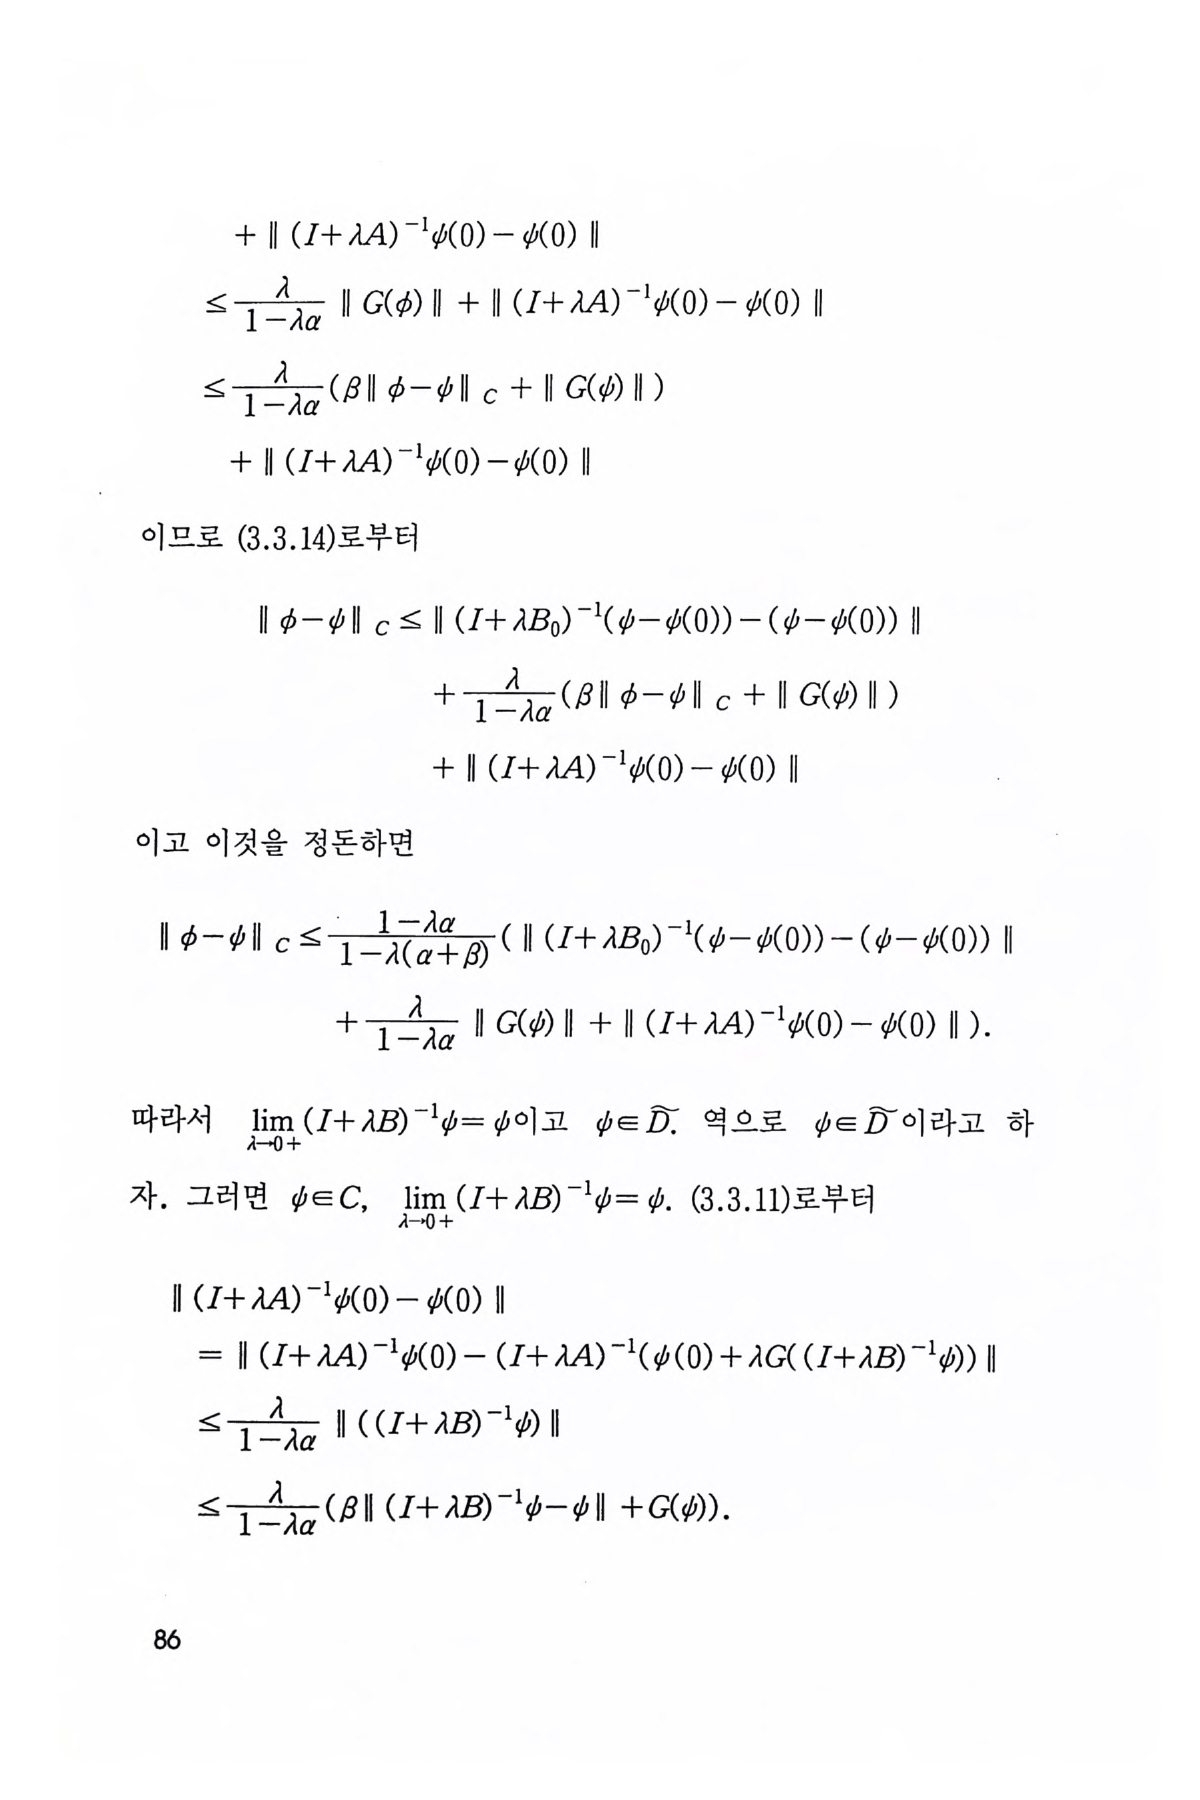 + ‖ (I+λA)⁻¹ψ(0) − ψ(0) ‖
≤ λ/(1−λα) ‖ G(φ) ‖ + ‖ (I+λA)⁻¹ψ(0) − ψ(0) ‖
≤ λ/(1−λα) (β‖ φ−ψ‖ C + ‖ G(ψ) ‖ )
+ ‖ (I+λA)⁻¹ψ(0)−ψ(0) ‖
이므로 (3.3.14)로부터
‖ φ−ψ‖ C ≤ ‖ (I+λB₀)⁻¹(ψ−ψ(0)) − (ψ−ψ(0)) ‖
+ λ/(1−λα) (β‖ φ−ψ‖ C + ‖ G(ψ) ‖ )
+ ‖ (I+λA)⁻¹ψ(0) − ψ(0) ‖
이고 이것을 정돈하면
‖ φ−ψ‖ C ≤ (1−λα)/(1−λ(α+β)) ( ‖ (I+λB₀)⁻¹(ψ−ψ(0)) − (ψ−ψ(0)) ‖
+ λ/(1−λα) ‖ G(ψ) ‖ + ‖ (I+λA)⁻¹ψ(0) − ψ(0) ‖ ).
따라서 lim λ→0+ (I+λB)⁻¹ψ= ψ이고 ψ∈D̃. 역으로 ψ∈D̃이라고 하
자. 그러면 ψ∈C, lim λ→0+ (I+λB)⁻¹ψ= ψ. (3.3.11)로부터
‖ (I+λA)⁻¹ψ(0) − ψ(0) ‖
= ‖ (I+λA)⁻¹ψ(0) − (I+λA)⁻¹(ψ(0)+λG((I+λB)⁻¹ψ)) ‖
≤ λ/(1−λα) ‖ ((I+λB)⁻¹ψ) ‖
≤ λ/(1−λα) (β‖ (I+λB)⁻¹ψ−ψ‖ +G(ψ)).
86